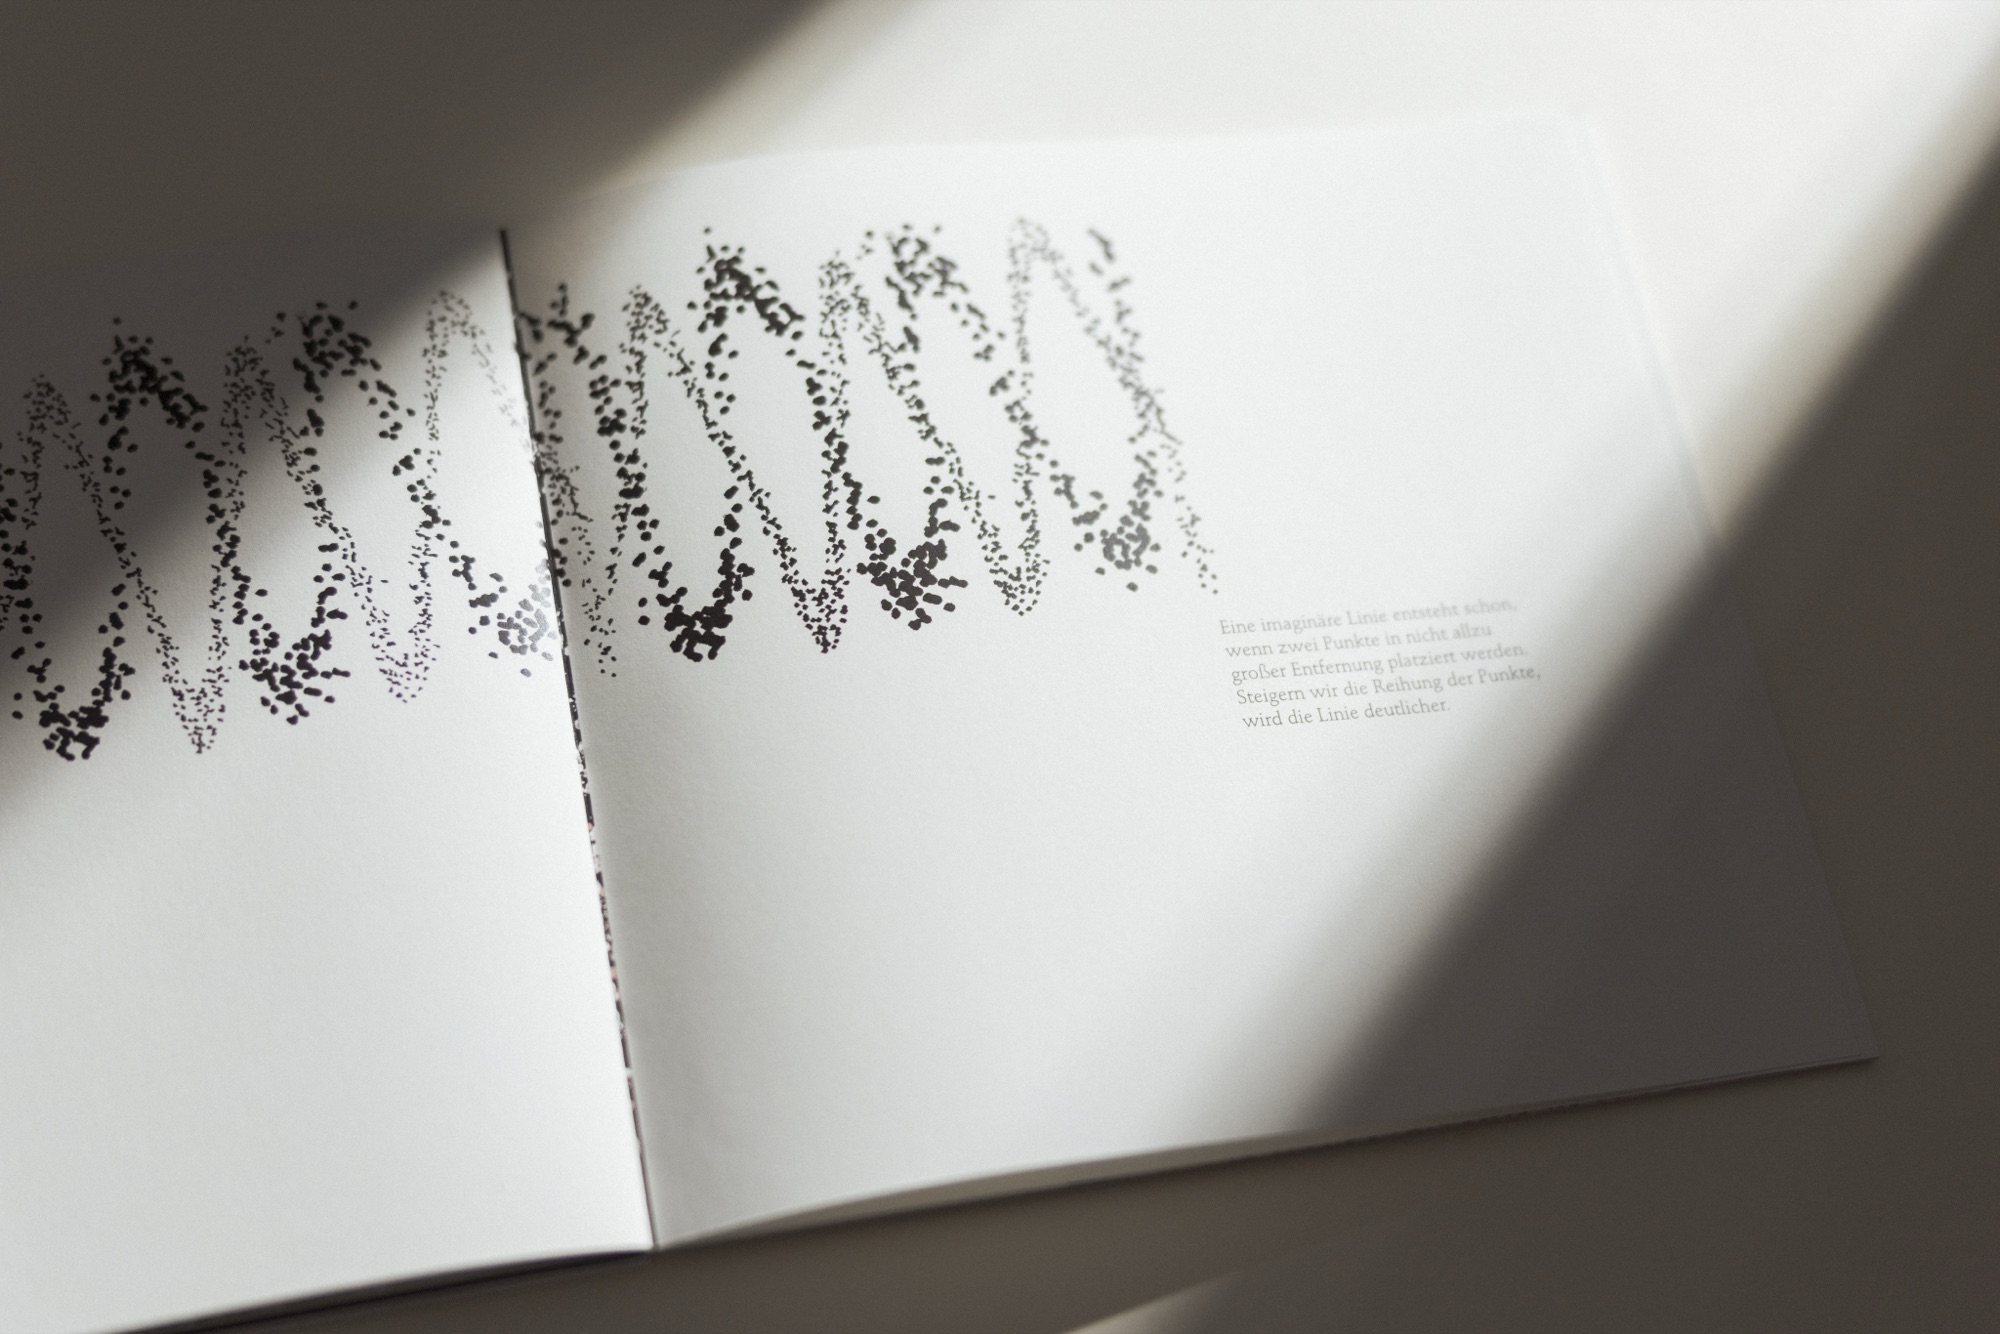 Eine imaginäre Linie entsteht schon,
wenn zwei Punkte in nicht allzu
großer Entfernung platziert werden.
Steigern wir die Reihung der Punkte,
wird die Linie deutlicher.